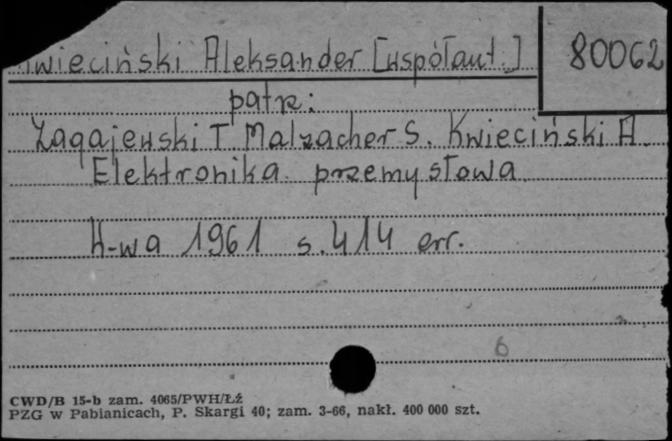 wieciński Aleksander [współaut.] 80062
patrz:
Zagajewski T. Malzacher S. Kwieciński A.
Elektronika przemysłowa
W-wa 1961 s. 414 err.
6
CWD/B 15-b zam. 4065/PWH/Łź
PZG w Pabianicach, P. Skargi 40; zam. 3-66, nakł. 400 000 szt.